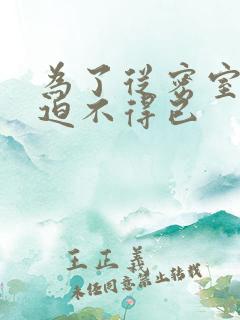 為了從密室
迫不得已
王正義
未經同意禁止轉載